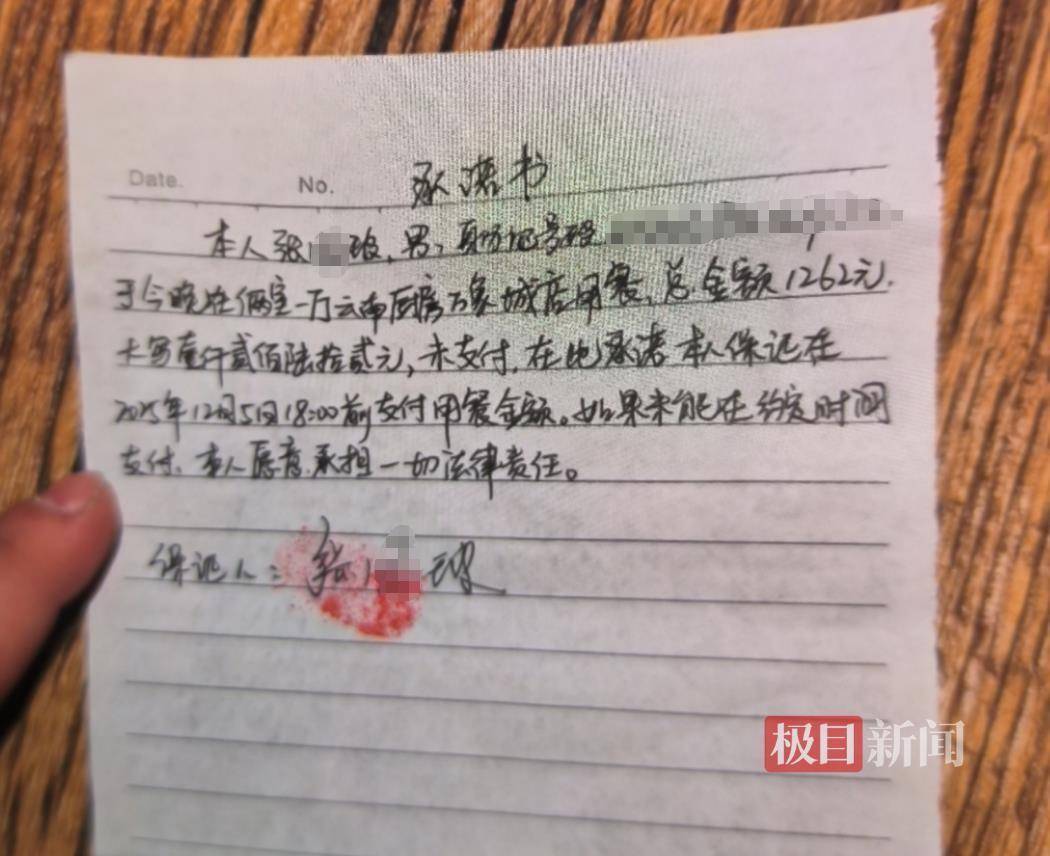 Date. No. 承诺书
本人张 玻，男，身份证号码
于今晚在俩室一厅云南厨房万象城店用餐，总金额1262元，
大写壹仟贰佰陆拾贰元，未支付，在此承诺本人保证在
2025年12月5日18:00前支付用餐金额。如果未能在约定时间
支付，本人愿意承担一切法律责任。
保证人：张 玻
极目新闻